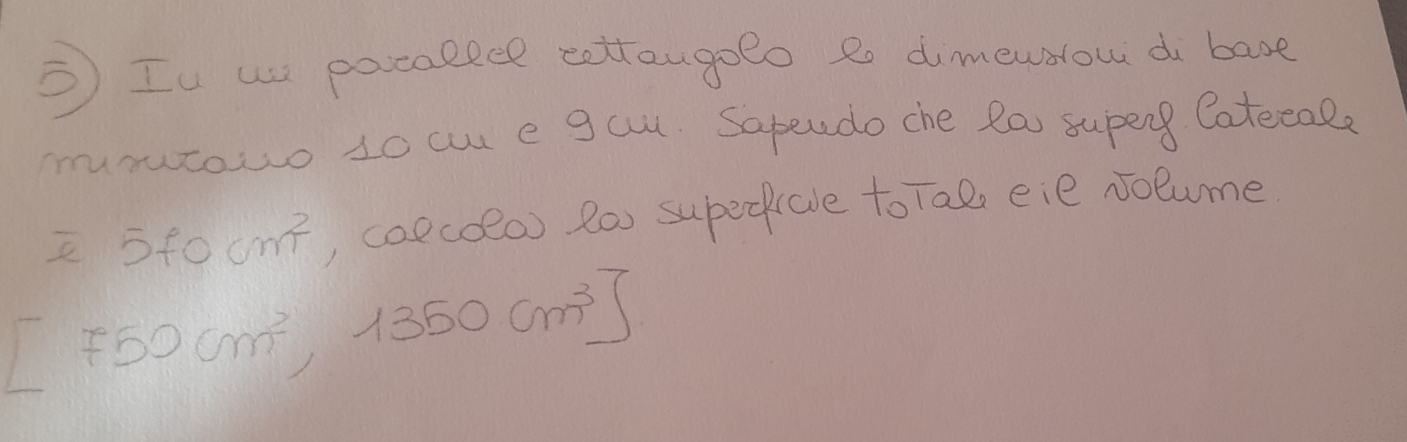 5) In un parallel rettangolo le dimensioni di base
misurano 10 cm e 9 cm. Sapendo che la superf laterale
è 570 cm², calcola la superficie totale e il volume.
[750 cm², 1350 cm³]